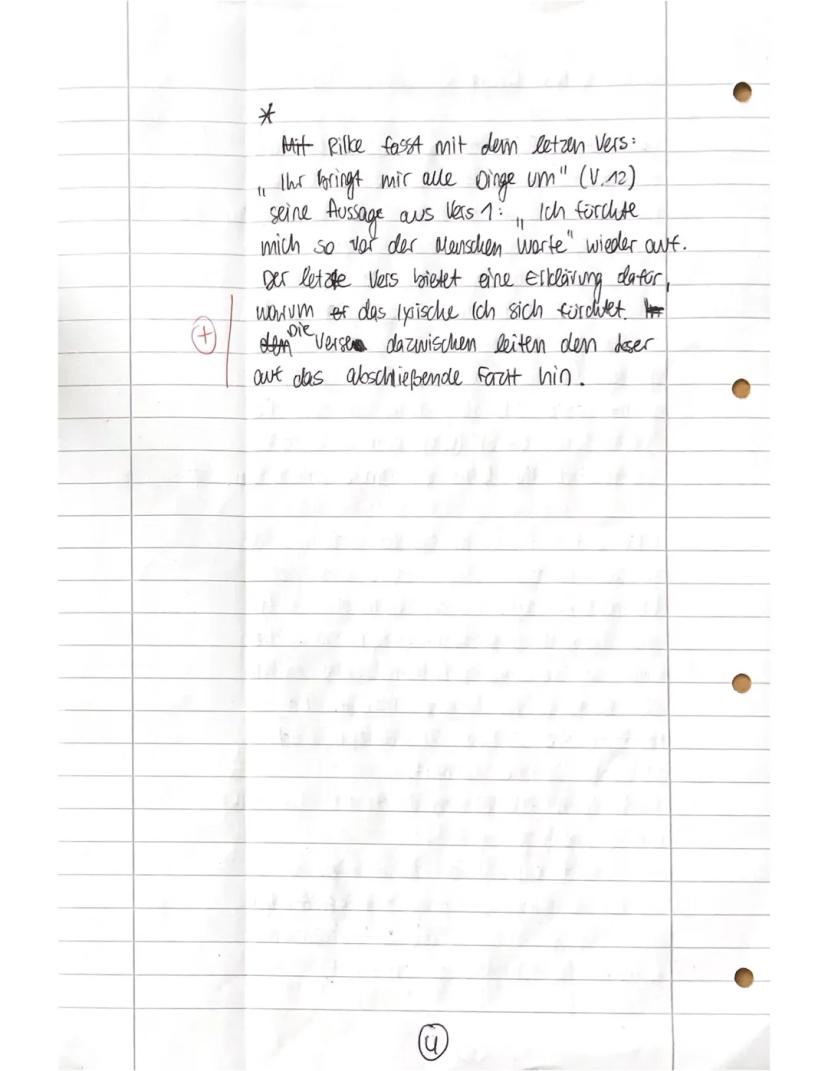 *
Mit Rilke fasst mit dem letzen Vers:
„Ihr bringt mir alle Dinge um" (V.12)
seine Aussage aus Vers 1: „Ich fürchte
mich so vor der Menschen Worte" wieder auf.
Der letzte Vers bietet eine Erklärung dafür,
warum er das lyrische Ich sich fürchtet. In
den Die Verse dazwischen leiten den Leser
auf das abschließende Fazit hin.
+
4